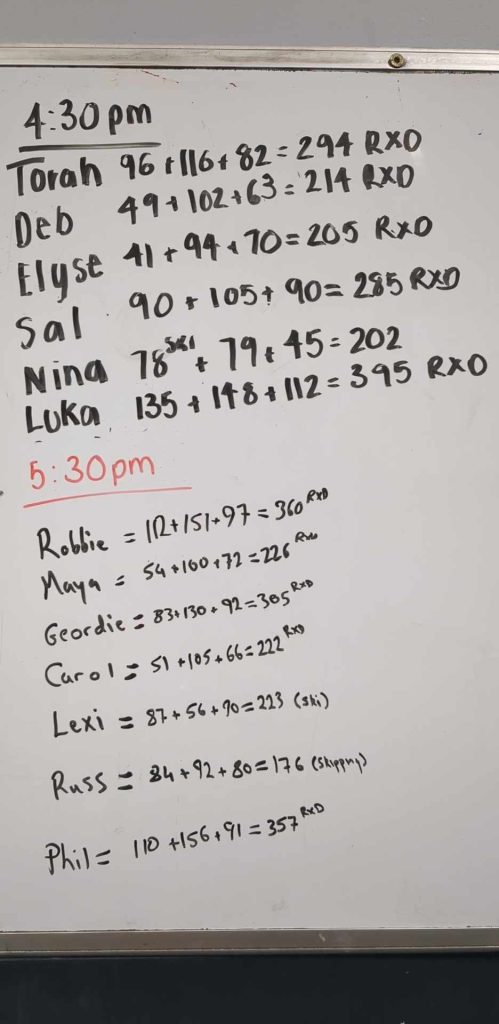 4:30pm
Torah 96 + 116 + 82 = 294 RXD
Deb 49 + 102 + 63 = 214 RXD
Elyse 41 + 94 + 70 = 205 RXD
Sal 90 + 105 + 90 = 285 RXD
Nina 78 ski + 79 + 45 = 202
Luka 135 + 148 + 112 = 395 RXD
5:30pm
Robbie = 112 + 151 + 97 = 360 RXD
Maya = 54 + 100 + 72 = 226 RXD
Geordie = 83 + 130 + 92 = 305 RXD
Carol = 51 + 105 + 66 = 222 RXD
Lexi = 87 + 56 + 90 = 223 (Ski)
Russ = 84 + 92 + 80 = 176 (Skippny)
Phil = 110 + 156 + 91 = 357 RXD